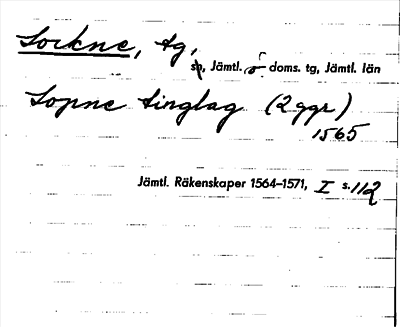 Sockne, tg,
sn, Jämtl. ö. doms. tg, Jämtl. län
Sopne tinglag (2 ggr)
1565
Jämtl. Räkenskaper 1564–1571, I s. 112